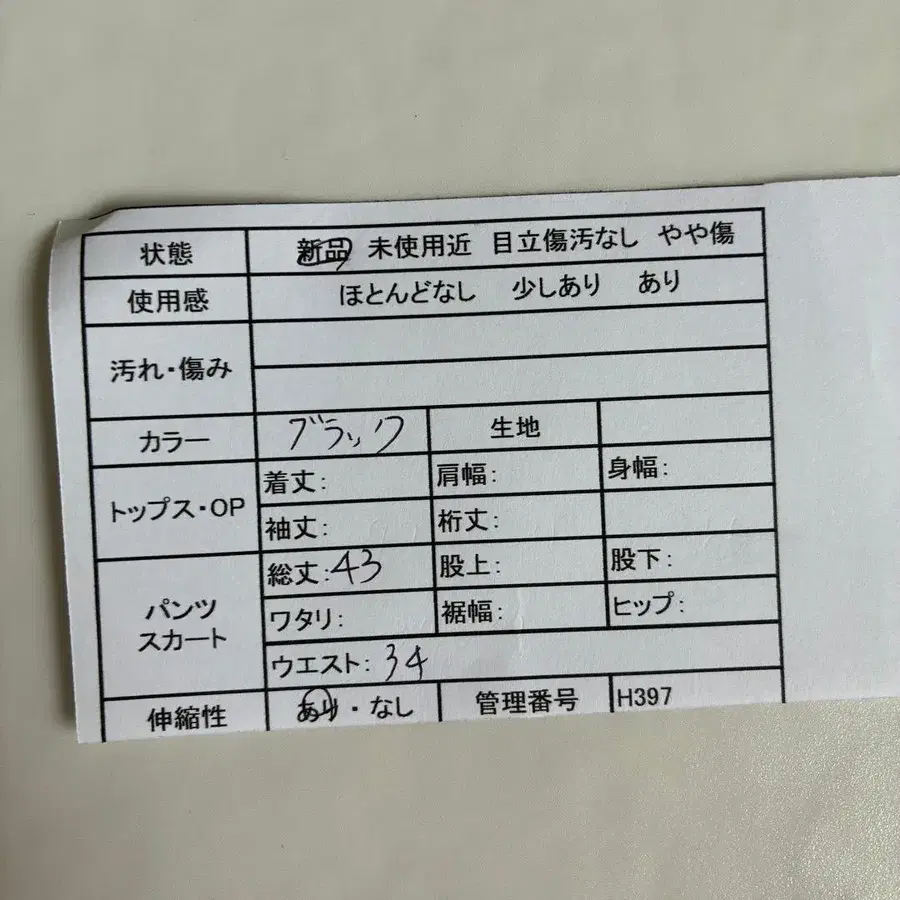 状態 新品 未使用近 目立傷汚なし やや傷
使用感 ほとんどなし 少しあり あり
汚れ・傷み
カラー ブラック 生地
トップス・OP 着丈: 肩幅: 身幅:
袖丈: 裄丈:
パンツ スカート 総丈:43 股上: 股下:
ワタリ: 裾幅: ヒップ:
ウエスト: 34
伸縮性 あり・なし 管理番号 H397